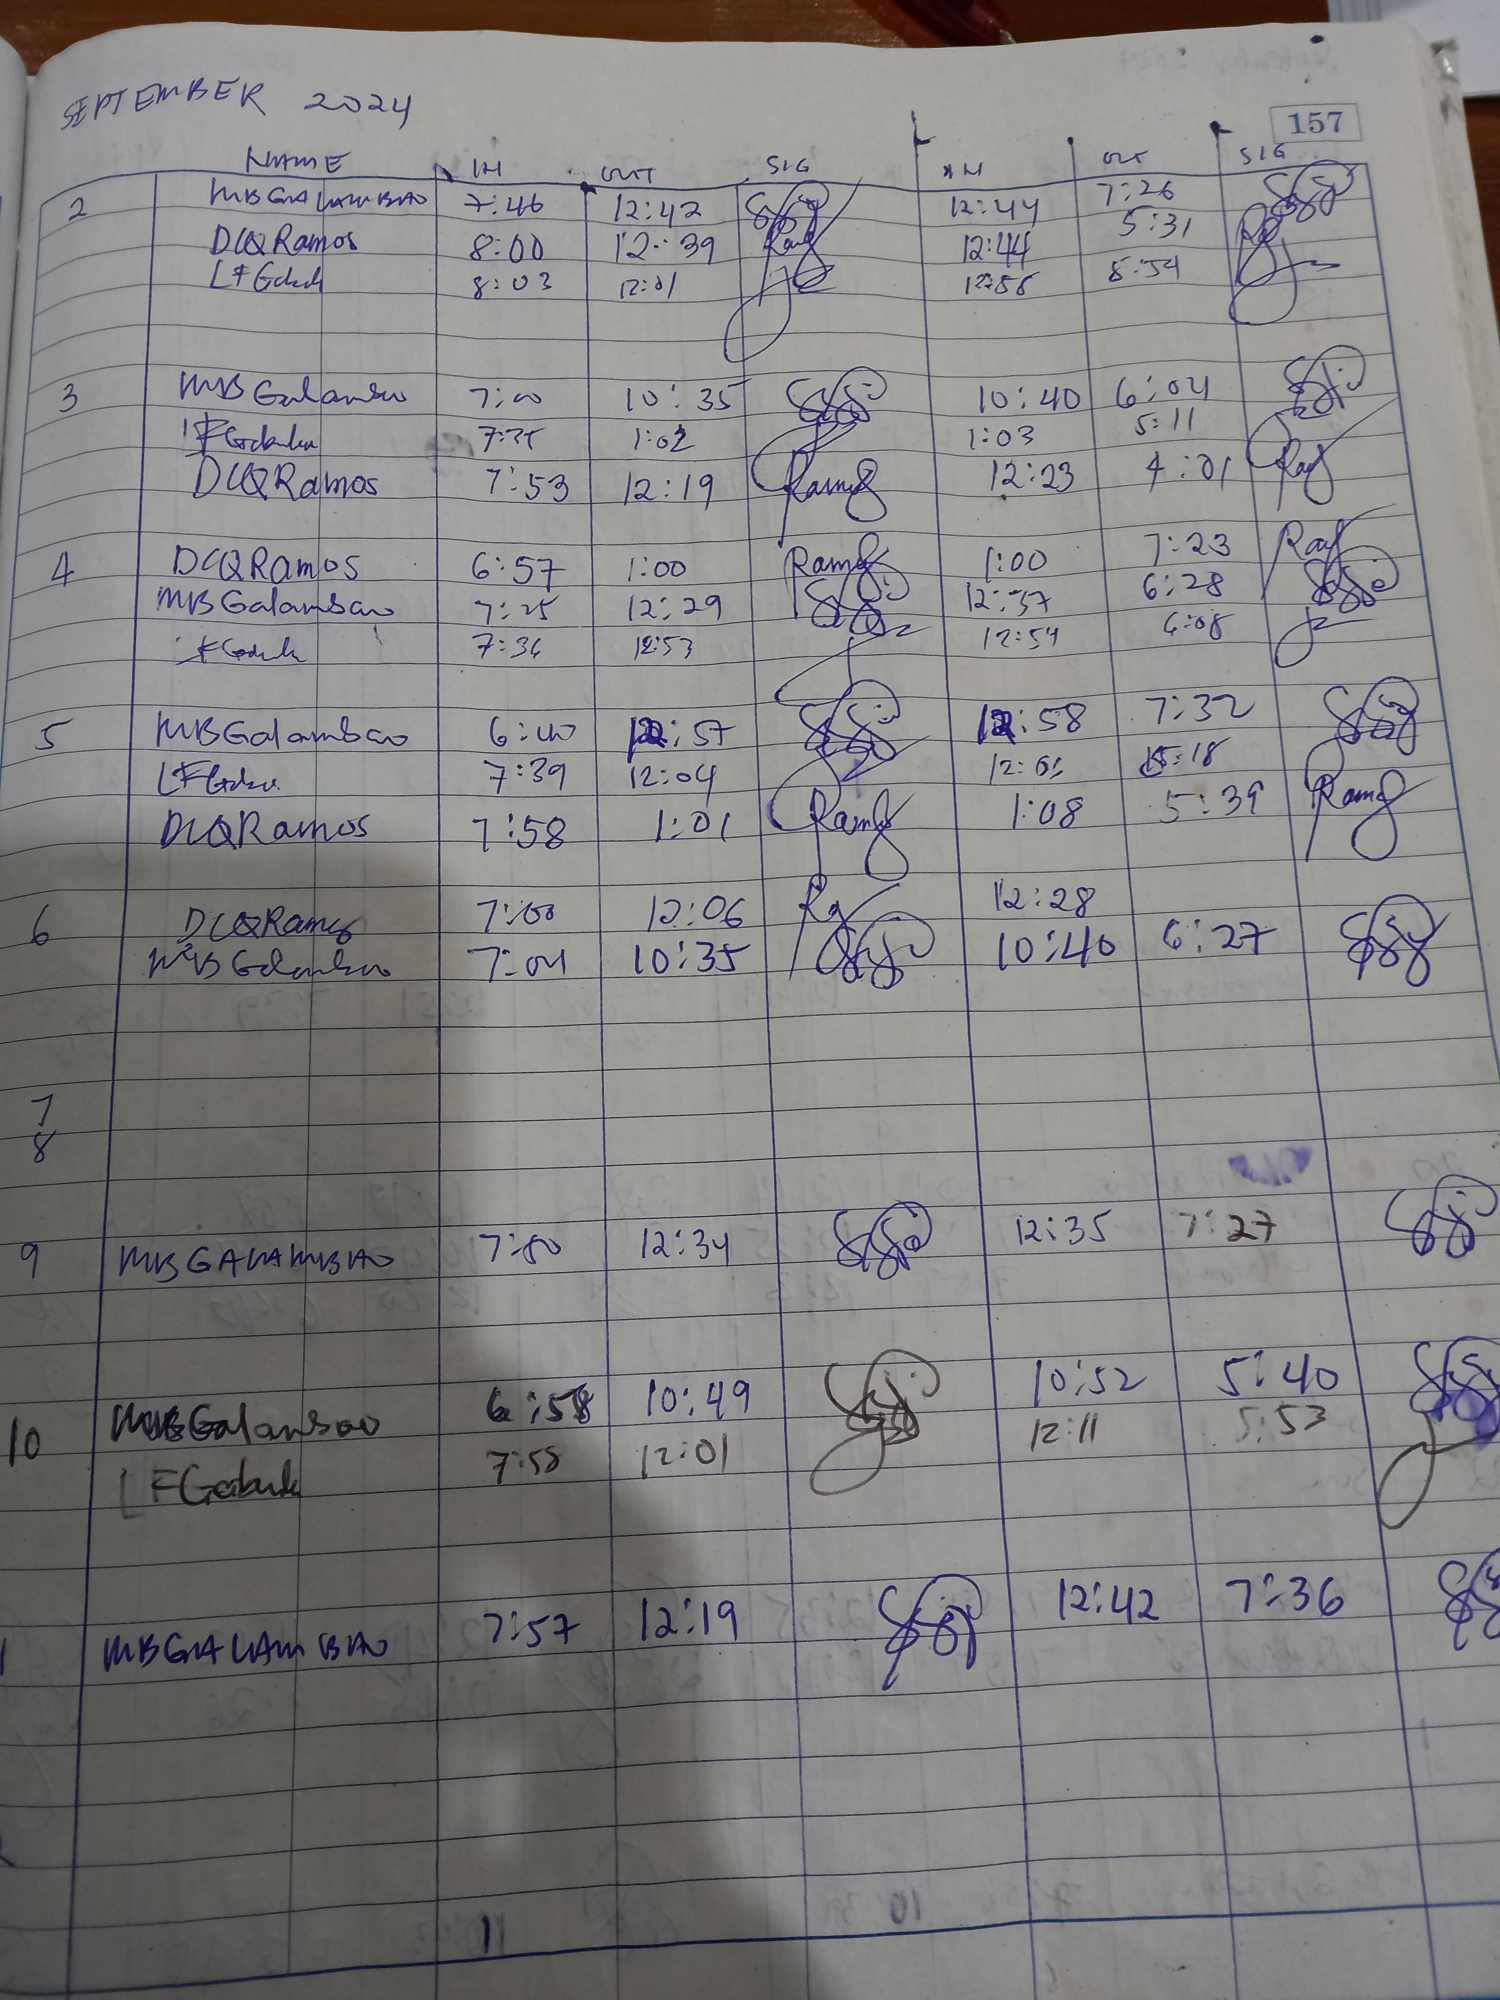 SEPTEMBER 2024
157
NAME IN OUT SIG IN OUT SIG
2 MBGALAMBAO 7:46 12:42 12:44 7:26
DCQRamos 8:00 12:39 12:44 5:31
LFGabuk 8:03 12:01 5:54
3 MBGalambao 7:00 10:35 10:40 6:04
1:02 1:03 5:11
DCQRamos 7:53 12:19 Ramos 12:23 4:01
4 DCQRamos 6:57 1:00 Ramos 1:00 7:23
MBGalambao 7:25 12:29 12:37 6:28
7:36 12:53 12:54 6:08
5 MBGalambao 6:40 12:57 12:58 7:32
7:39 12:04 5:18
DCQRamos 7:58 1:01 Ramos 1:08 5:39 Ramos
6 DCQRamos 7:00 12:06 12:28
MBGalambao 7:04 10:35 10:40 6:27
7
8
9 MBGALAMBAO 12:34 12:35 7:27
10 MBGalambao 6:58 10:49 10:52 5:40
LFGabuk 7:58 12:01 12:11 5:53
MBGALAMBAO 7:57 12:19 12:42 7:36